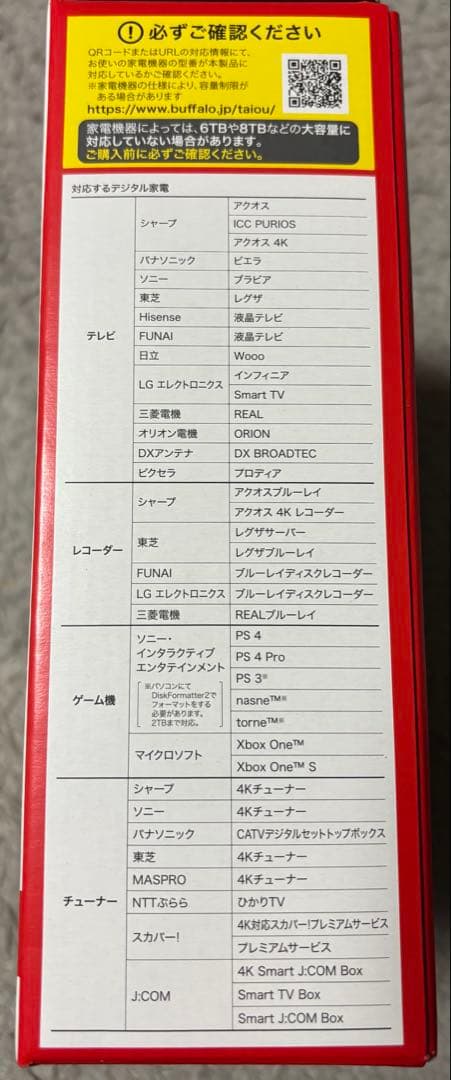 ! 必ずご確認ください
QRコードまたはURLの対応情報にて、
お使いの家電機器の型番が本製品に
対応しているかご確認ください。
※家電機器の仕様により、容量制限が
ある場合があります
https://www.buffalo.jp/taiou/
家電機器によっては、6TBや8TBなどの大容量に
対応していない場合があります。
ご購入前に必ずご確認ください。
対応するデジタル家電
テレビ
シャープ
アクオス
ICC PURIOS
アクオス 4K
パナソニック ビエラ
ソニー ブラビア
東芝 レグザ
Hisense 液晶テレビ
FUNAI 液晶テレビ
日立 Wooo
LG エレクトロニクス
インフィニア
Smart TV
三菱電機 REAL
オリオン電機 ORION
DXアンテナ DX BROADTEC
ピクセラ プロディア
レコーダー
シャープ
アクオスブルーレイ
アクオス 4K レコーダー
東芝
レグザサーバー
レグザブルーレイ
FUNAI ブルーレイディスクレコーダー
LG エレクトロニクス ブルーレイディスクレコーダー
三菱電機 REALブルーレイ
ゲーム機
ソニー・
インタラクティブ
エンタテインメント
※パソコンにて
DiskFormatter2で
フォーマットをする
必要があります。
2TBまで対応。
PS 4
PS 4 Pro
PS 3※
nasne™※
torne™※
マイクロソフト
Xbox One™
Xbox One™ S
チューナー
シャープ 4Kチューナー
ソニー 4Kチューナー
パナソニック CATVデジタルセットトップボックス
東芝 4Kチューナー
MASPRO 4Kチューナー
NTTぷらら ひかりTV
スカパー!
4K対応スカパー!プレミアムサービス
プレミアムサービス
J:COM
4K Smart J:COM Box
Smart TV Box
Smart J:COM Box